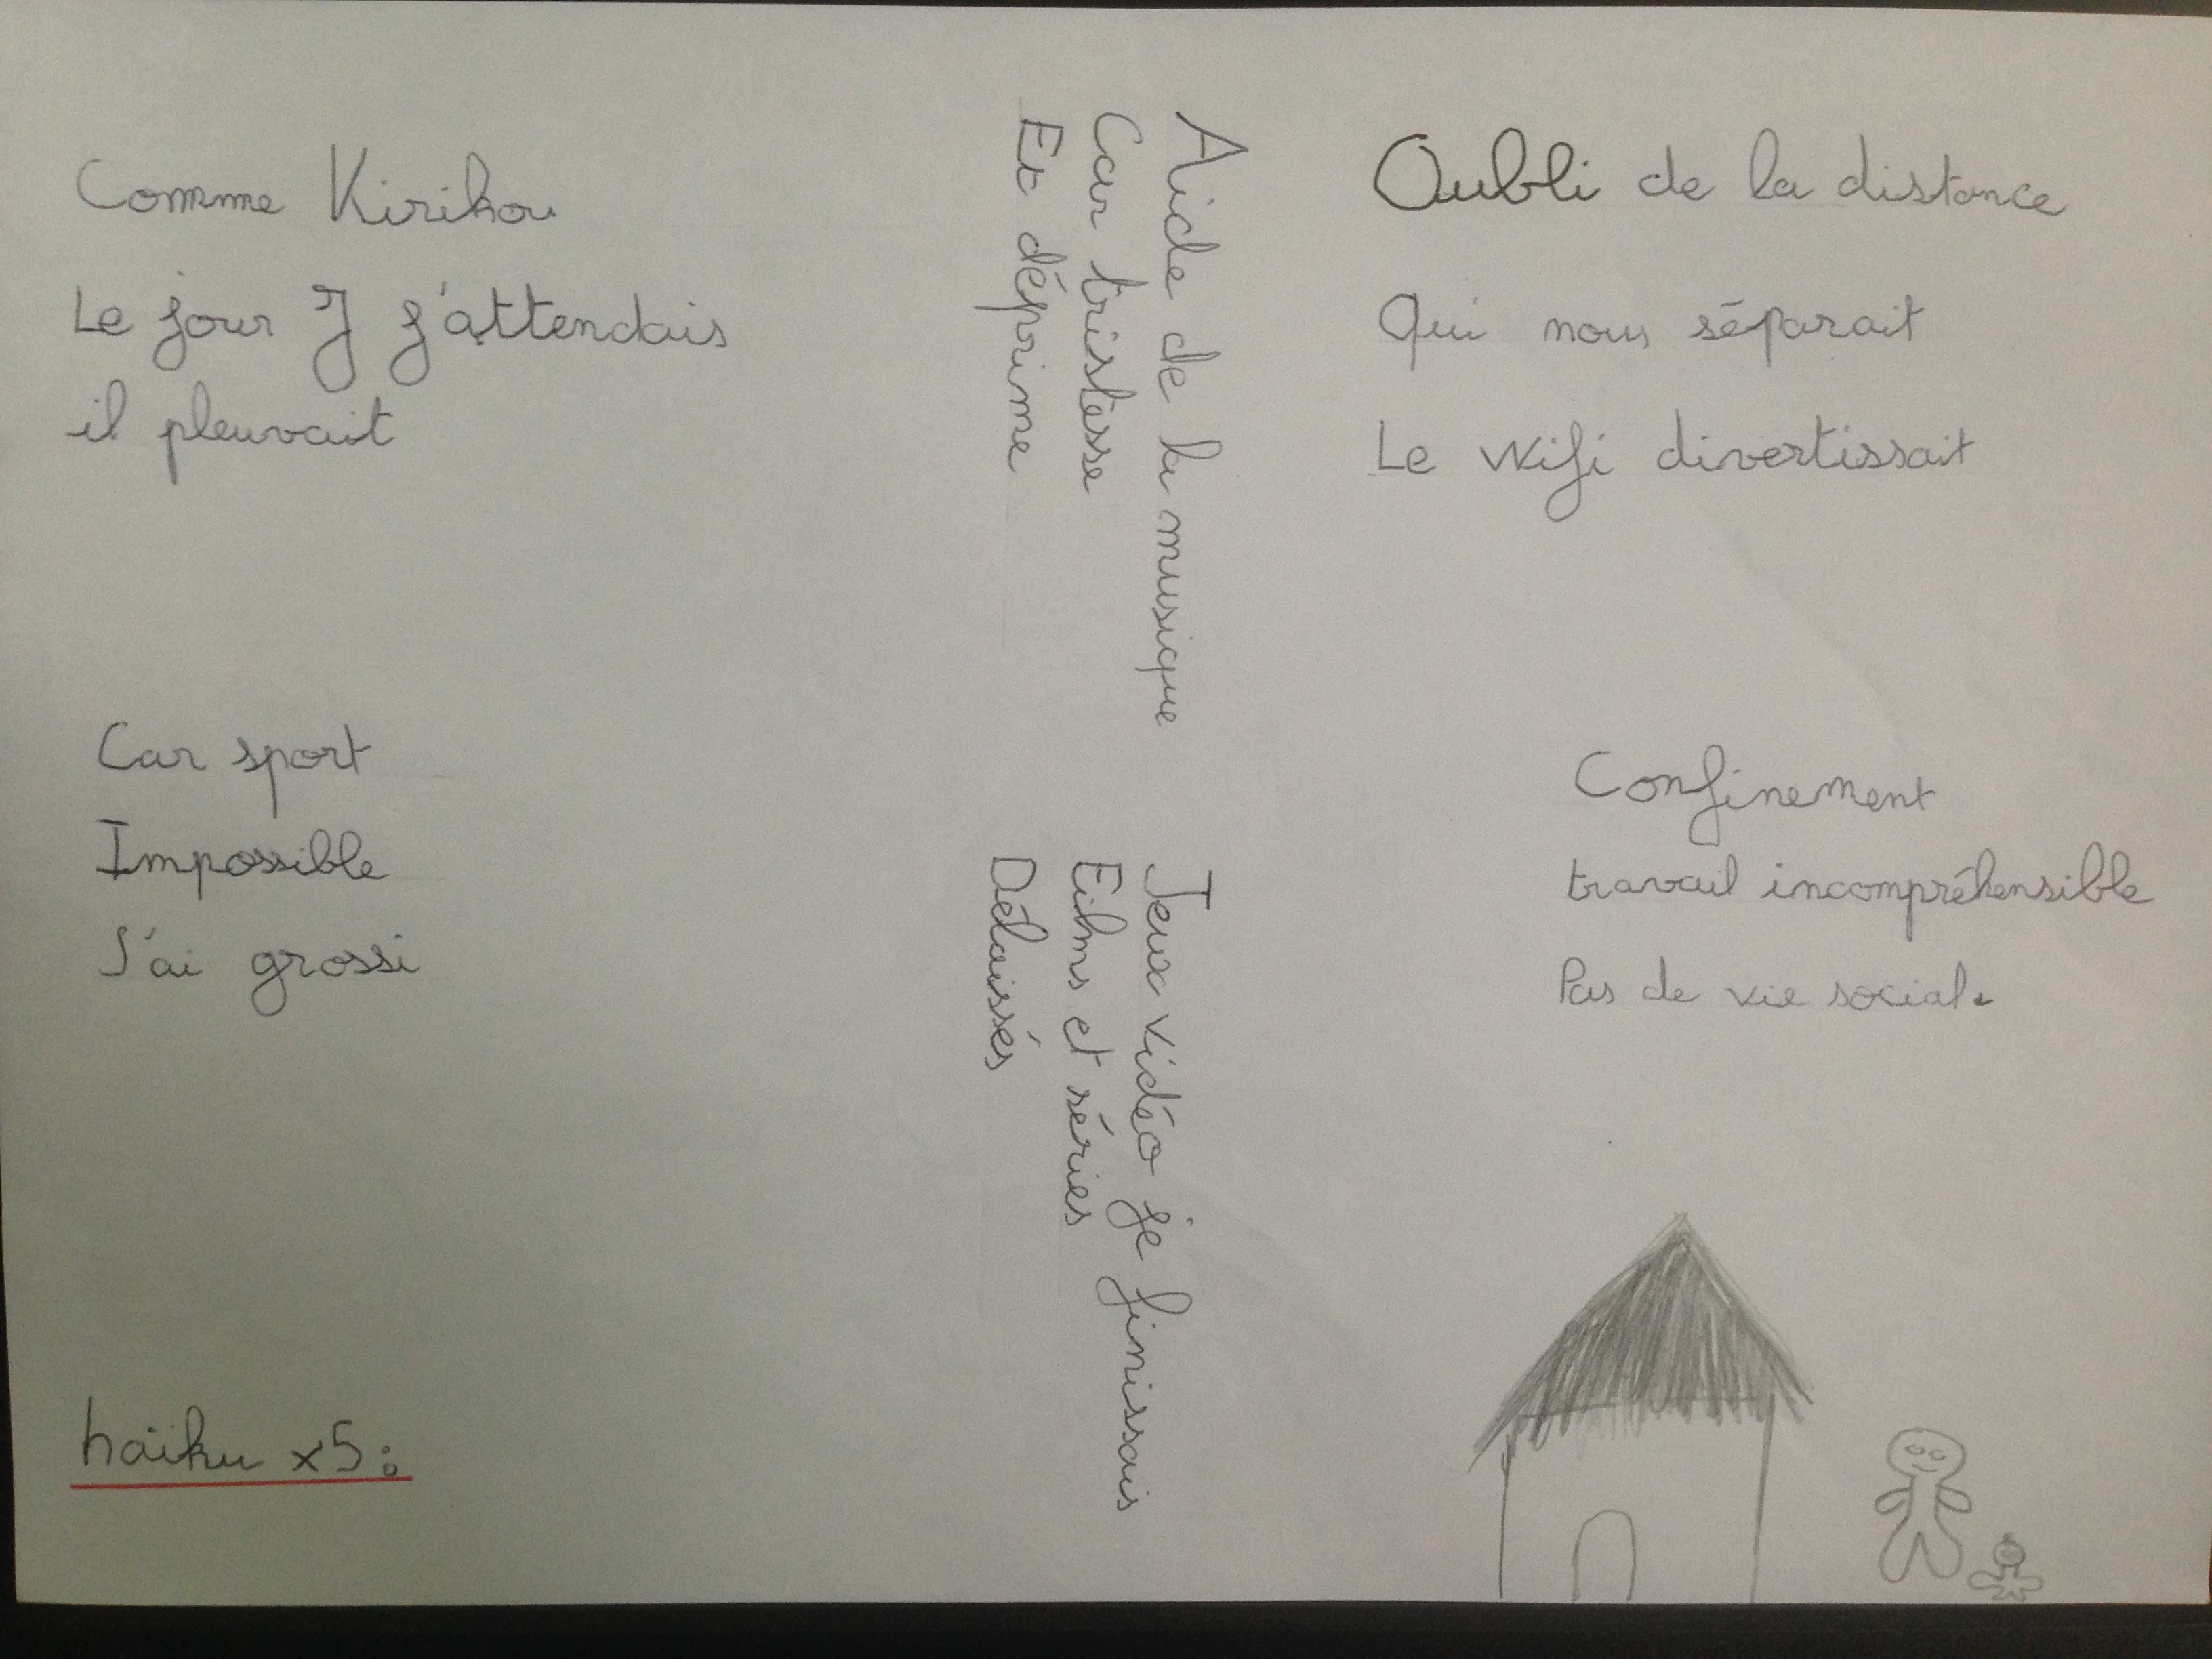 Comme Kirikou
Le jour J j'attendais
il pleuvait
Car sport
Impossible
J'ai grossi
haïku x5:
Aide de la musique
Car tristesse
Et déprime
Jeux vidéo je finissais
Films et séries
Délaissés
Oubli de la distance
Qui nous séparait
Le wifi divertissait
Confinement
travail incompréhensible
Pas de vie sociale